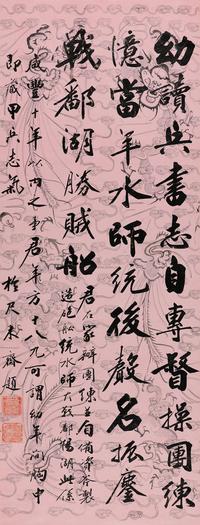 幼讀兵書志自專督操團練
憶當年水師統後聲名振鏖
戰鄱湖勝賊船
君在家辦團練並自備薪資製
造砲船統水師大戰鄱陽湖此係
咸豐十年以內之事君年方十八九可謂幼年胸中
即藏甲兵志氣